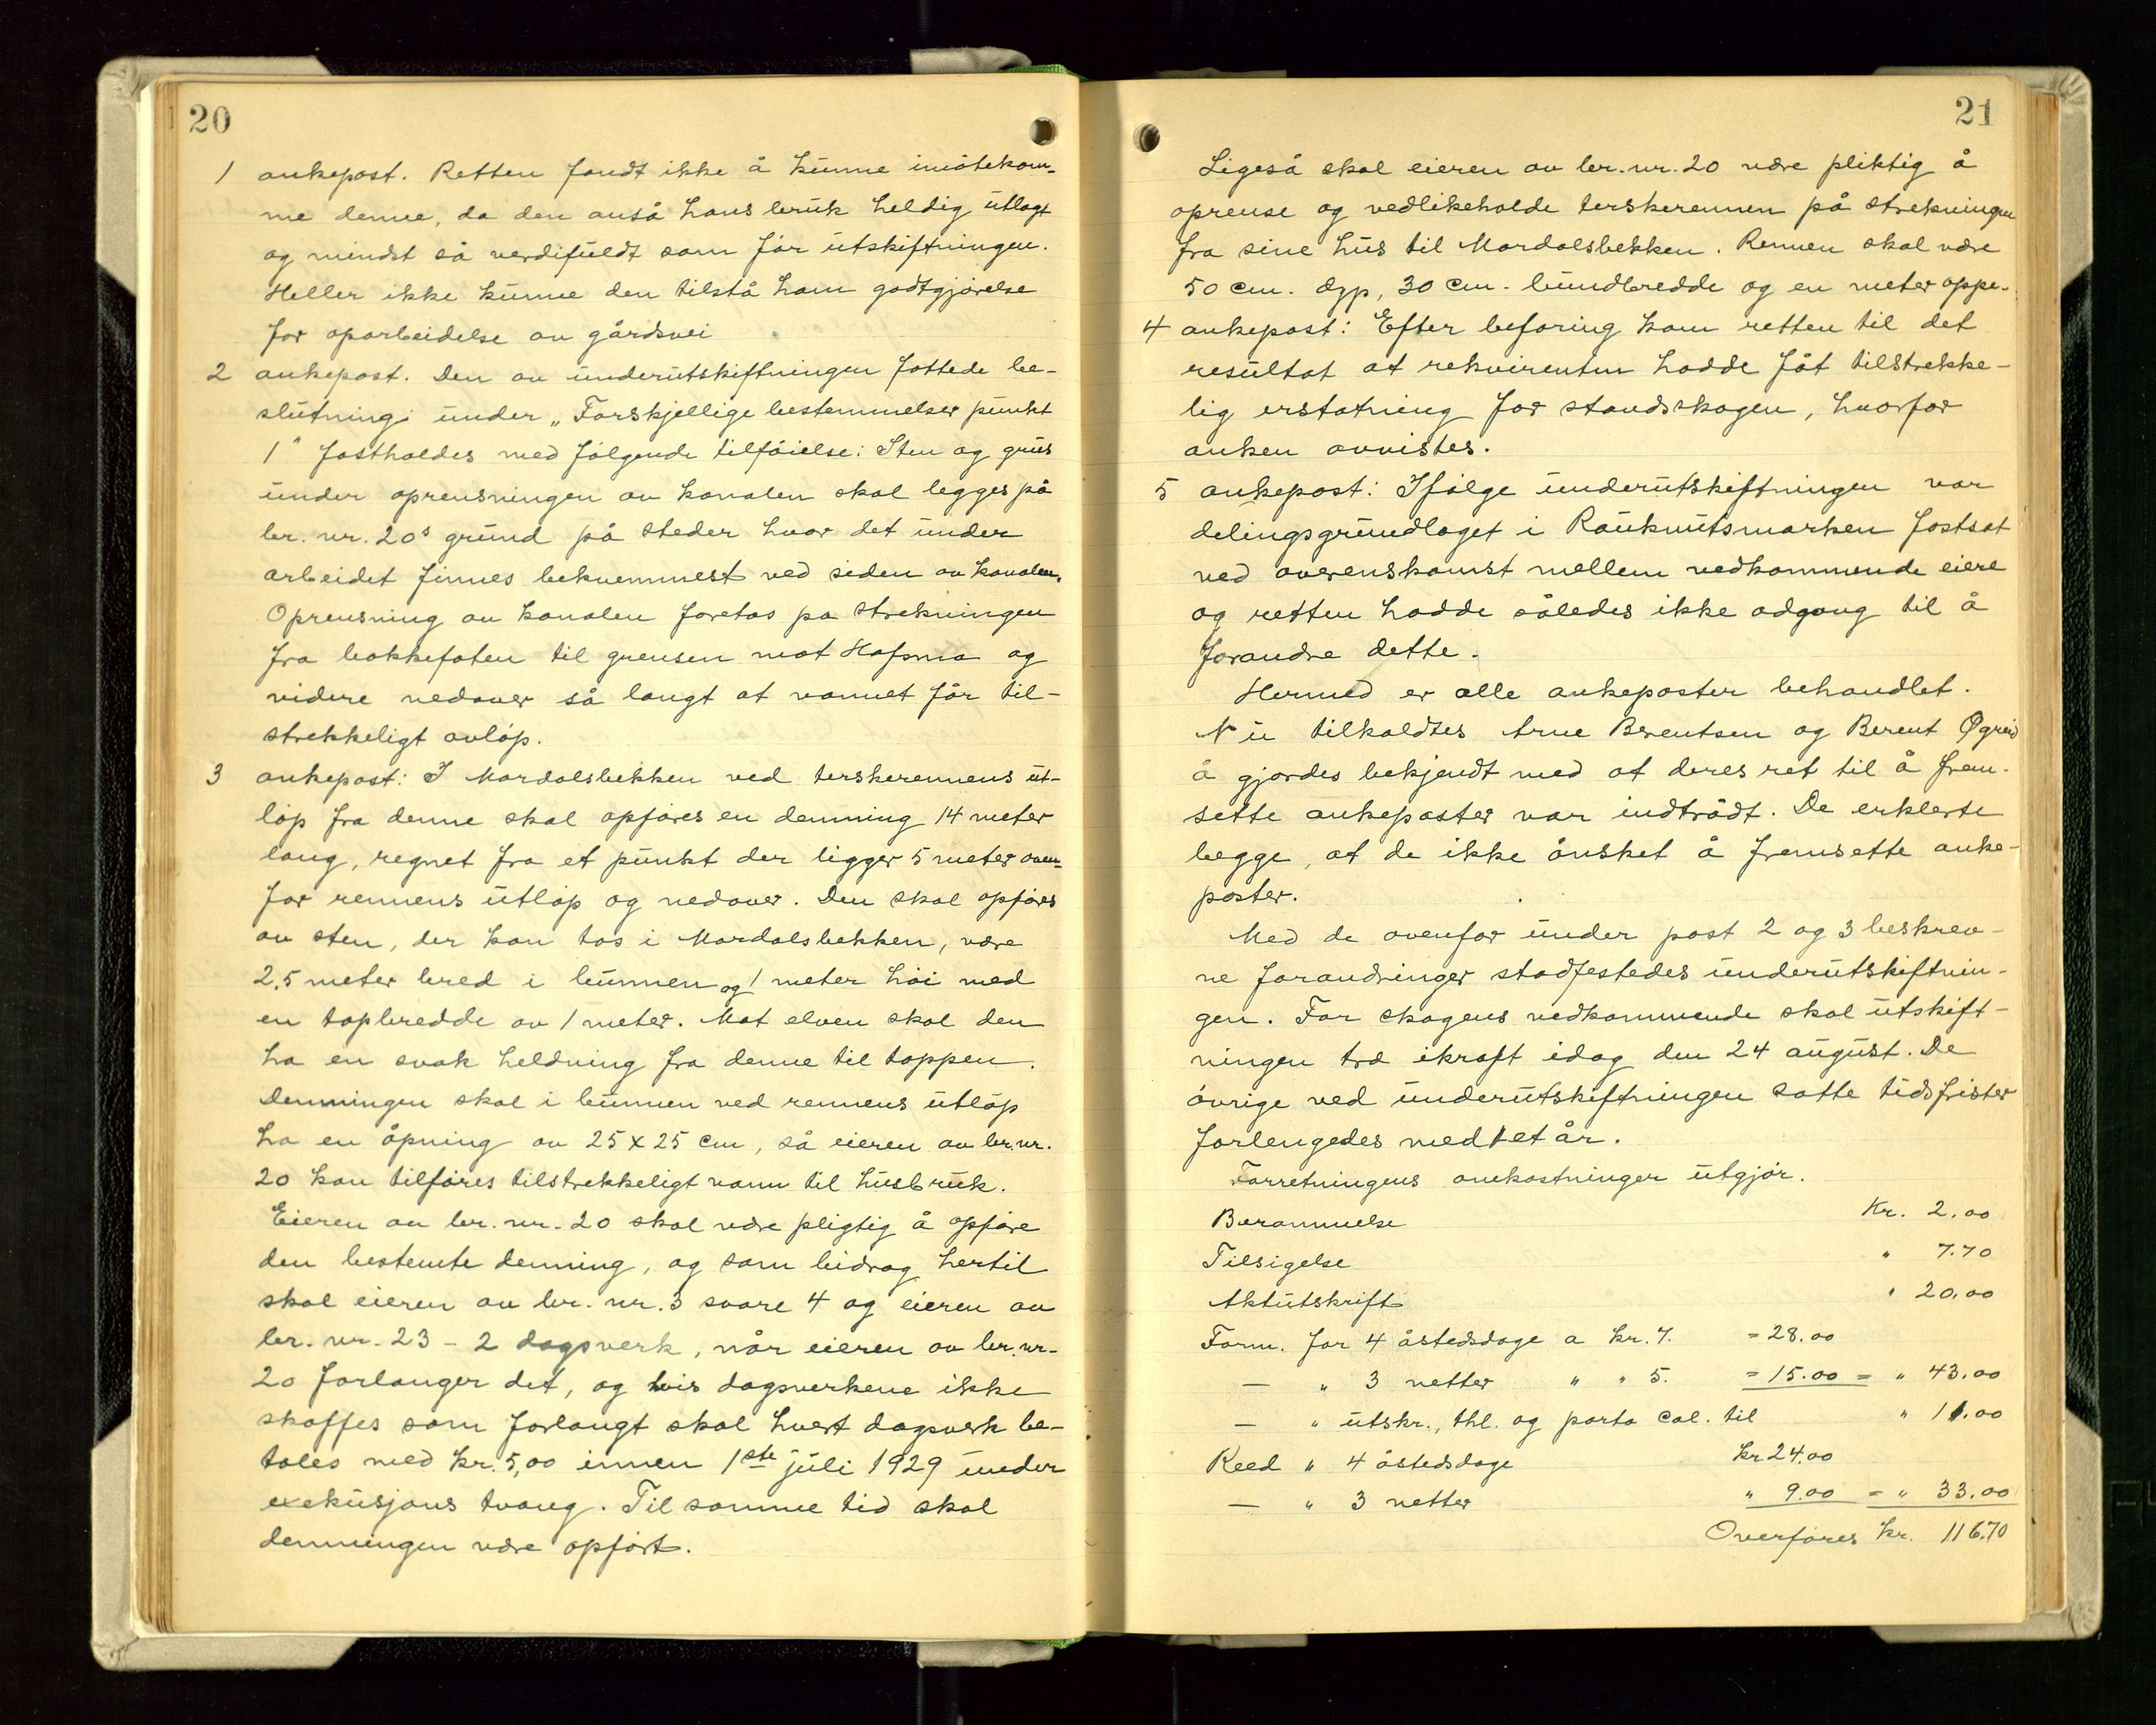 20
1 ankepost. Retten fandt ikke å kunne imøtekom-
me denne, da den anså hans bruk heldig utlagt
og mindst så verdifuldt som før utskiftningen.
Heller ikke kunne den tilstå ham godtgjørelse
for oparbeidelse av gårdsvei
2 ankepost. Den av underutskiftningen fattede be-
slutning: under „Forskjellige bestemmelser punkt
1" fastholdes med følgende tilføielse: Sten og grus
under oprensningen av kanalen skal legges på
br. nr. 20s grund på steder hvor det under
arbeidet finnes bekvemmest ved siden av kanalen.
Oprensning av kanalen foretas pa strekningen
fra bakkefoten til grensen mot Hafsmo og
videre nedover så langt at vannet får til-
strekkeligt avløp.
3 ankepost: I Mardalsbekken ved terskerennens ut-
løp fra denne skal opføres en demning 14 meter
lang, regnet fra et punkt der ligger 5 meter oven-
for rennens utløp og nedover. Den skal opføres
av sten, der kan tas i Mardalsbekken, være
2,5 meter bred i bunnen og 1 meter høi med
en topbredde av 1 meter. Mot elven skal den
ha en svak heldning fra denne til toppen.
Demningen skal i bunnen ved rennens utløp
ha en åpning av 25 x 25 cm, så eieren av br. nr.
20 kan tilføres tilstrekkeligt vann til husbruk.
Eieren av br. nr. 20 skal være pligtig å opføre
den bestemte demning, og som bidrag hertil
skal eieren av br. nr. 3 svare 4 og eieren av
br. nr. 23 - 2 dagsverk, når eieren av br. nr.
20 forlanger det, og hvis dagsverkene ikke
skaffes som forlangt skal hvert dagsverk be-
tales med kr. 5,00 innen 1ste juli 1929 under
exekusjons tvang. Til samme tid skal
demningen være opført.
21
Ligeså skal eieren av br. nr. 20 være pliktig å
oprense og vedlikeholde terskerennen på strekningen
fra sine hus til Mardalsbekken. Rennen skal være
50 cm. dyp, 30 cm. bundbredde og en meter oppe.
4 ankepost: Efter befaring kom retten til det
resultat at rekvirenten hadde fåt tilstrekke-
lig erstatning for standskogen, hvorfor
anken avvistes.
5 ankepost: Ifølge underutskiftningen var
delingsgrundlaget i Rauknutsmarken fastsat
ved overenskomst mellem vedkommende eiere
og retten hadde således ikke adgang til å
forandre dette.
Hermed er alle ankeposter behandlet.
Nu tilkaldtes Arne Berentsen og Berent Øgreid
å gjordes bekjendt med at deres ret til å frem-
sette ankeposter var indtrådt. De erklerte
begge, at de ikke ønsket å fremsette anke-
poster.
Med de ovenfor under post 2 og 3 beskrev-
ne forandringer stadfestedes underutskiftnin-
gen. For skogens vedkommende skal utskift-
ningen træ ikraft idag den 24 august. De
øvrige ved underutskiftningen satte tidsfrister
forlengedes med 1 et år.
Forretningens omkostninger utgjør.
Berammelse Kr. 2.00
Tilsigelse " 7.70
Aktutskrift " 20.00
Form. for 4 åstedsdage a kr. 7. = 28.00
— " 3 netter " " 5. = 15.00 = " 43.00
— " utskr., thl. og porto cal. til " 11.00
Reed " 4 åstedsdage kr 24.00
— " 3 netter " 9.00 = " 33.00
Overføres kr. 116.70